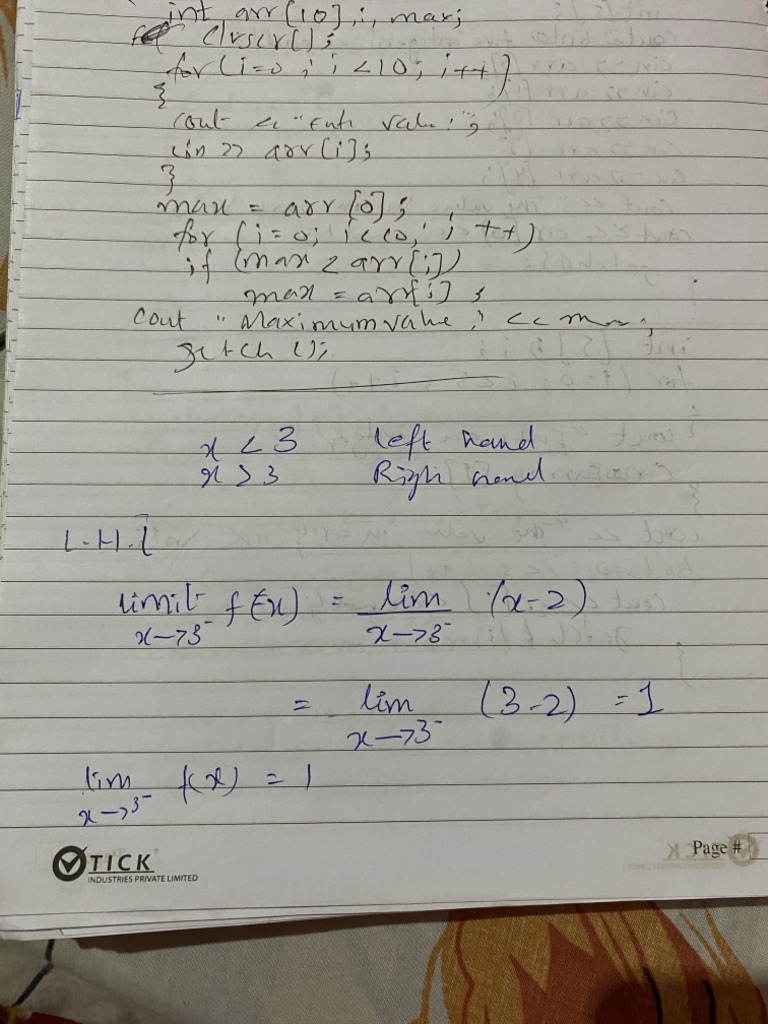 int arr[10], i, max;
clrscr();
for (i=0 ; i <10; i++)
{
cout << "Ente value:";
cin >> arr[i];
}
max = arr [0];
for (i=0; i<10; i++)
if (max < arr[i])
max = arr[i] ;
cout "Maximum value:" << max;
getch ();
x < 3 left hand
x > 3 Right hand
L.H.L
limit x→3⁻ f(x) = lim x→3⁻ (x-2)
= lim x→3⁻ (3-2) = 1
lim x→3⁻ f(x) = 1
TICK
INDUSTRIES PRIVATE LIMITED
Page #